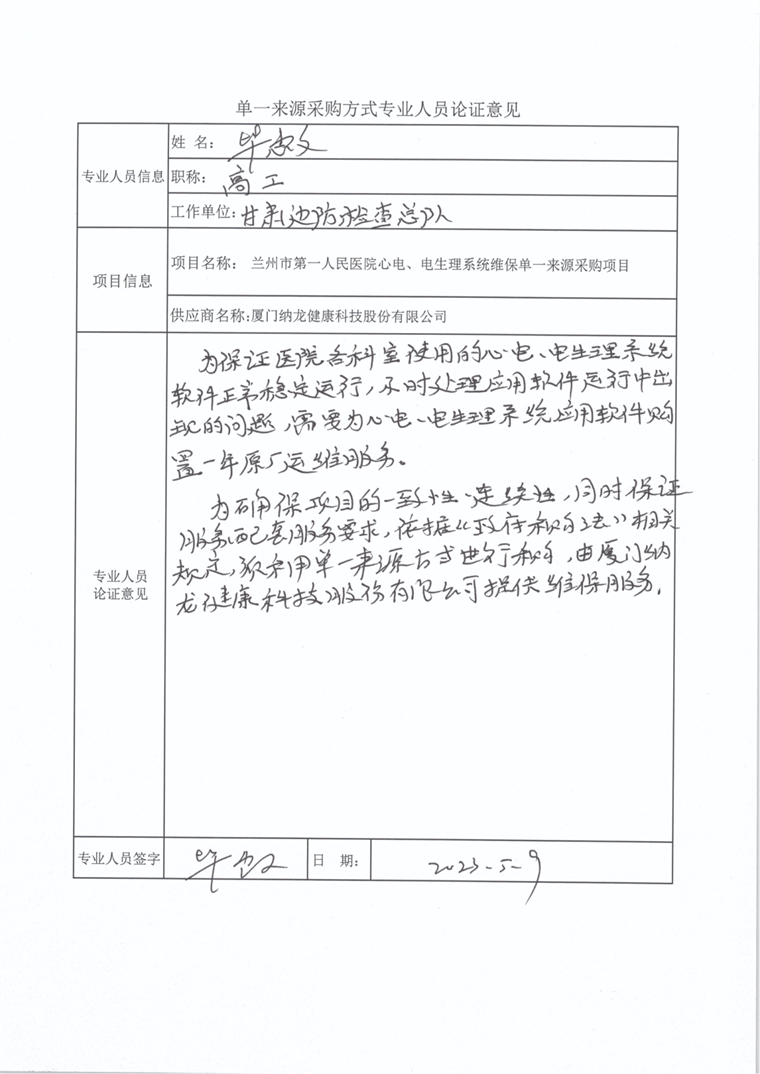 单一来源采购方式专业人员论证意见
专业人员信息
姓 名: 毕忠文
职称: 高工
工作单位: 甘肃边防检查总队
项目信息
项目名称: 兰州市第一人民医院心电、电生理系统维保单一来源采购项目
供应商名称:厦门纳龙健康科技股份有限公司
专业人员
论证意见
为保证医院各科室使用的心电、电生理系统
软件正常稳定运行,及时处理应用软件运行中出
现的问题,需要为心电、电生理系统应用软件购
置一年原厂运维服务。
为确保项目的一致性、连续性,同时保证
服务配套服务要求,依据《政府采购法》相关
规定,须采用单一来源方式进行采购,由厦门纳
龙健康科技股份有限公司提供维保服务。
专业人员签字
毕
日 期:
2023-5-9